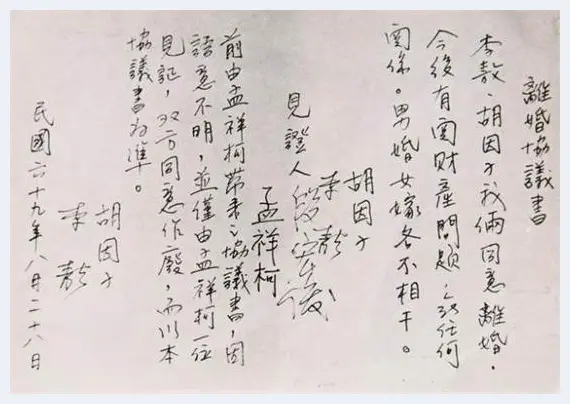 離婚協議書
李敖、胡因子我倆同意離婚.
今後有関財産問題,任何
関係。男婚女嫁各不相干。
胡因子
李敖
見證人段宏俊
孟祥柯
前由孟祥柯帶來之協議書,因
語意不明,並僅由孟祥柯一位
見証,双方同意作廢,而以本
協議書為準。
胡因子
李敖
民國六十九年八月二十八日